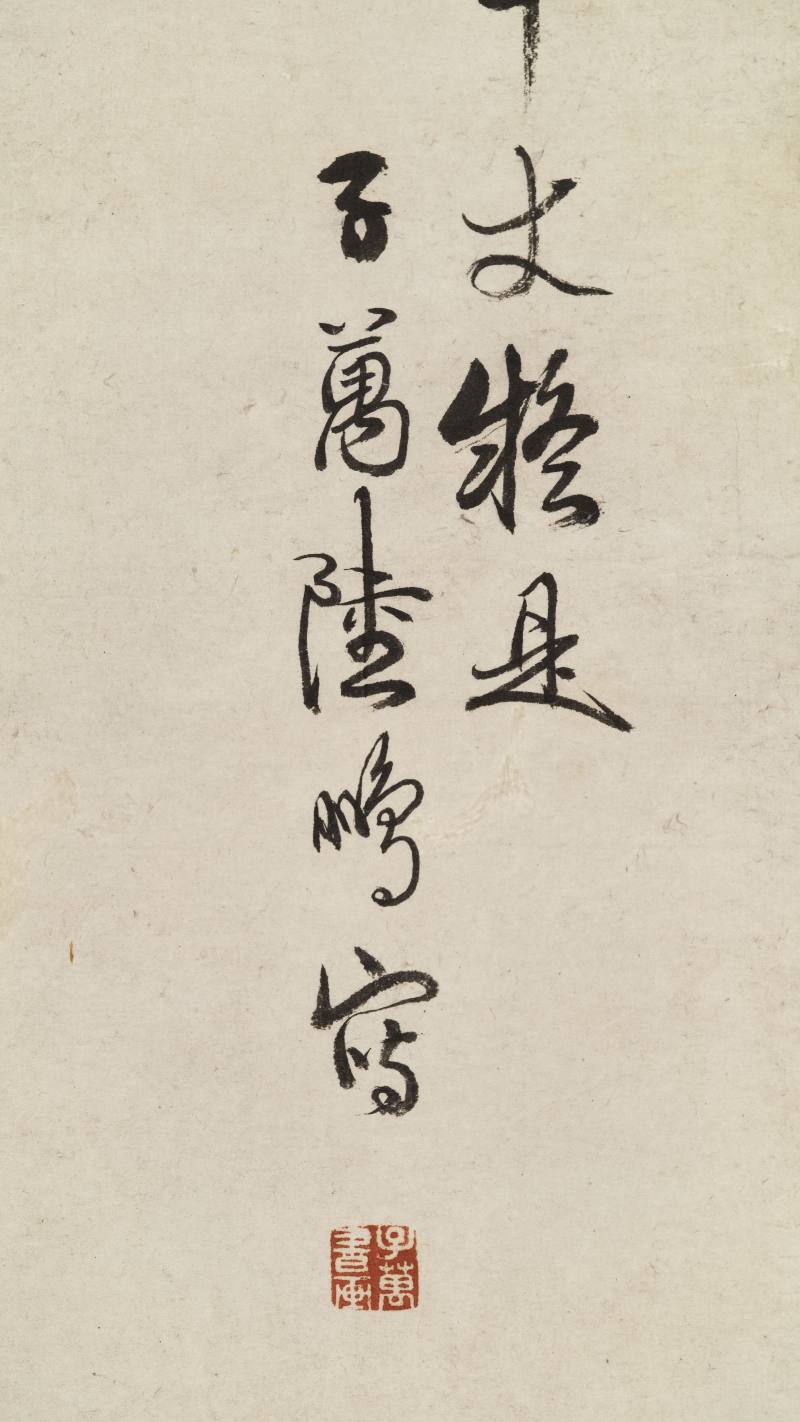 丈疑是
子萬陸鵬寫
子萬
書画